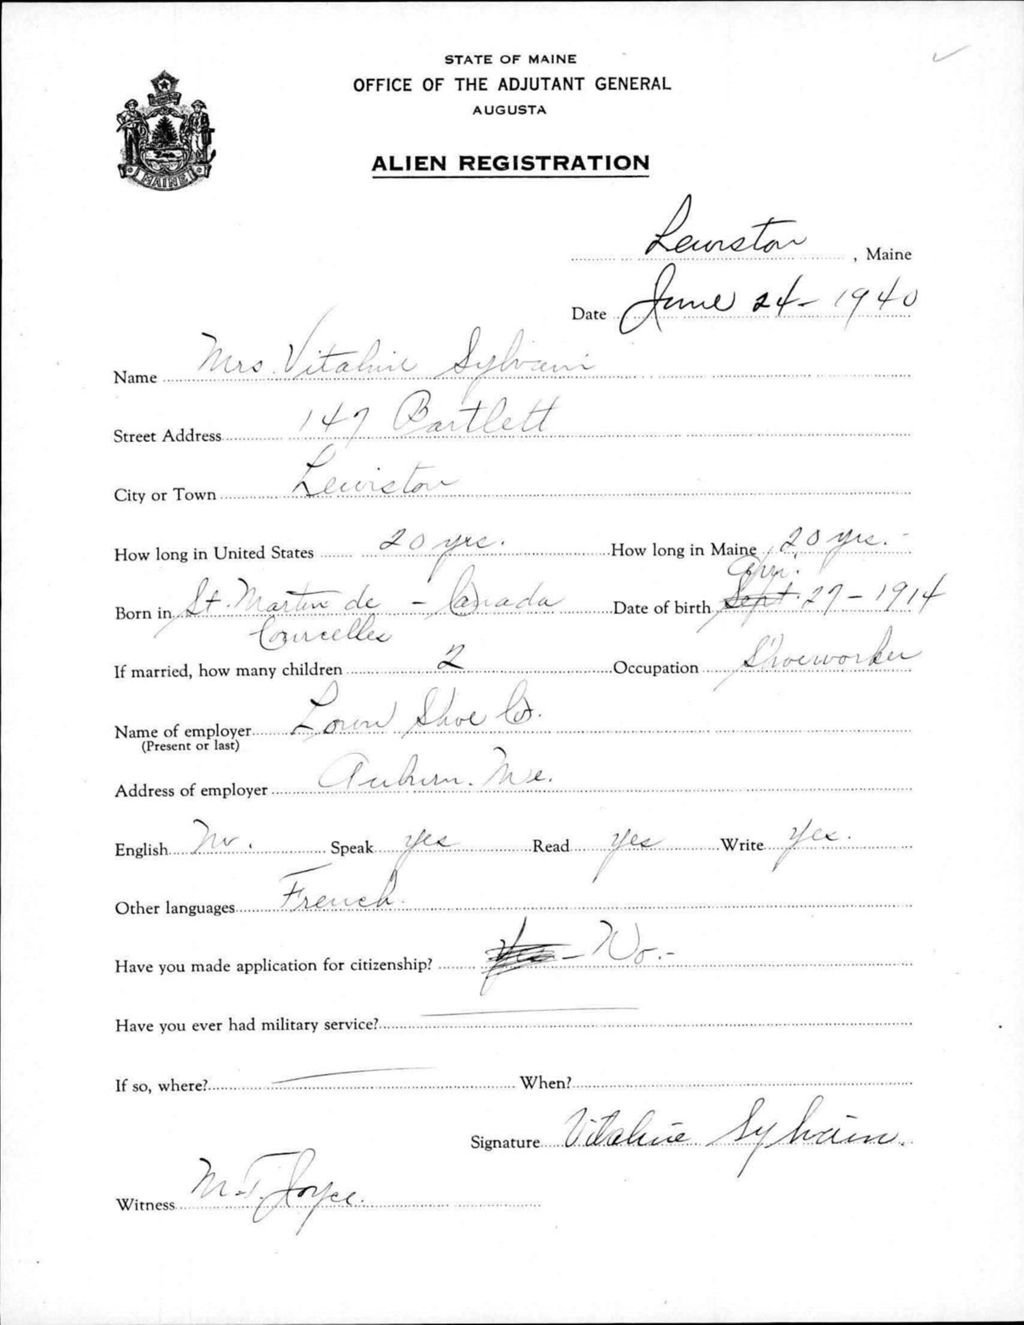 STATE OF MAINE
OFFICE OF THE ADJUTANT GENERAL
AUGUSTA
MAINE
ALIEN REGISTRATION
Lewiston, Maine
Date June 24 - 1940
Name Mrs. Vitaline Sylvain
Street Address 147 Bartlett
City or Town Lewiston
How long in United States 20 yrs. How long in Maine 20 yrs. -
Born in St. Martin de - Canada Date of birth Sept. 27 - 1914
Courcelles
If married, how many children 2 Occupation Shoeworker
Name of employer Lown Shoe Co.
(Present or last)
Address of employer Auburn. Me.
English No. Speak yes Read yes Write Yes.
Other languages French.
Have you made application for citizenship? Yes - No. -
Have you ever had military service?
If so, where? When?
Signature Vitaline Sylvain.
Witness M. T. Joyce.